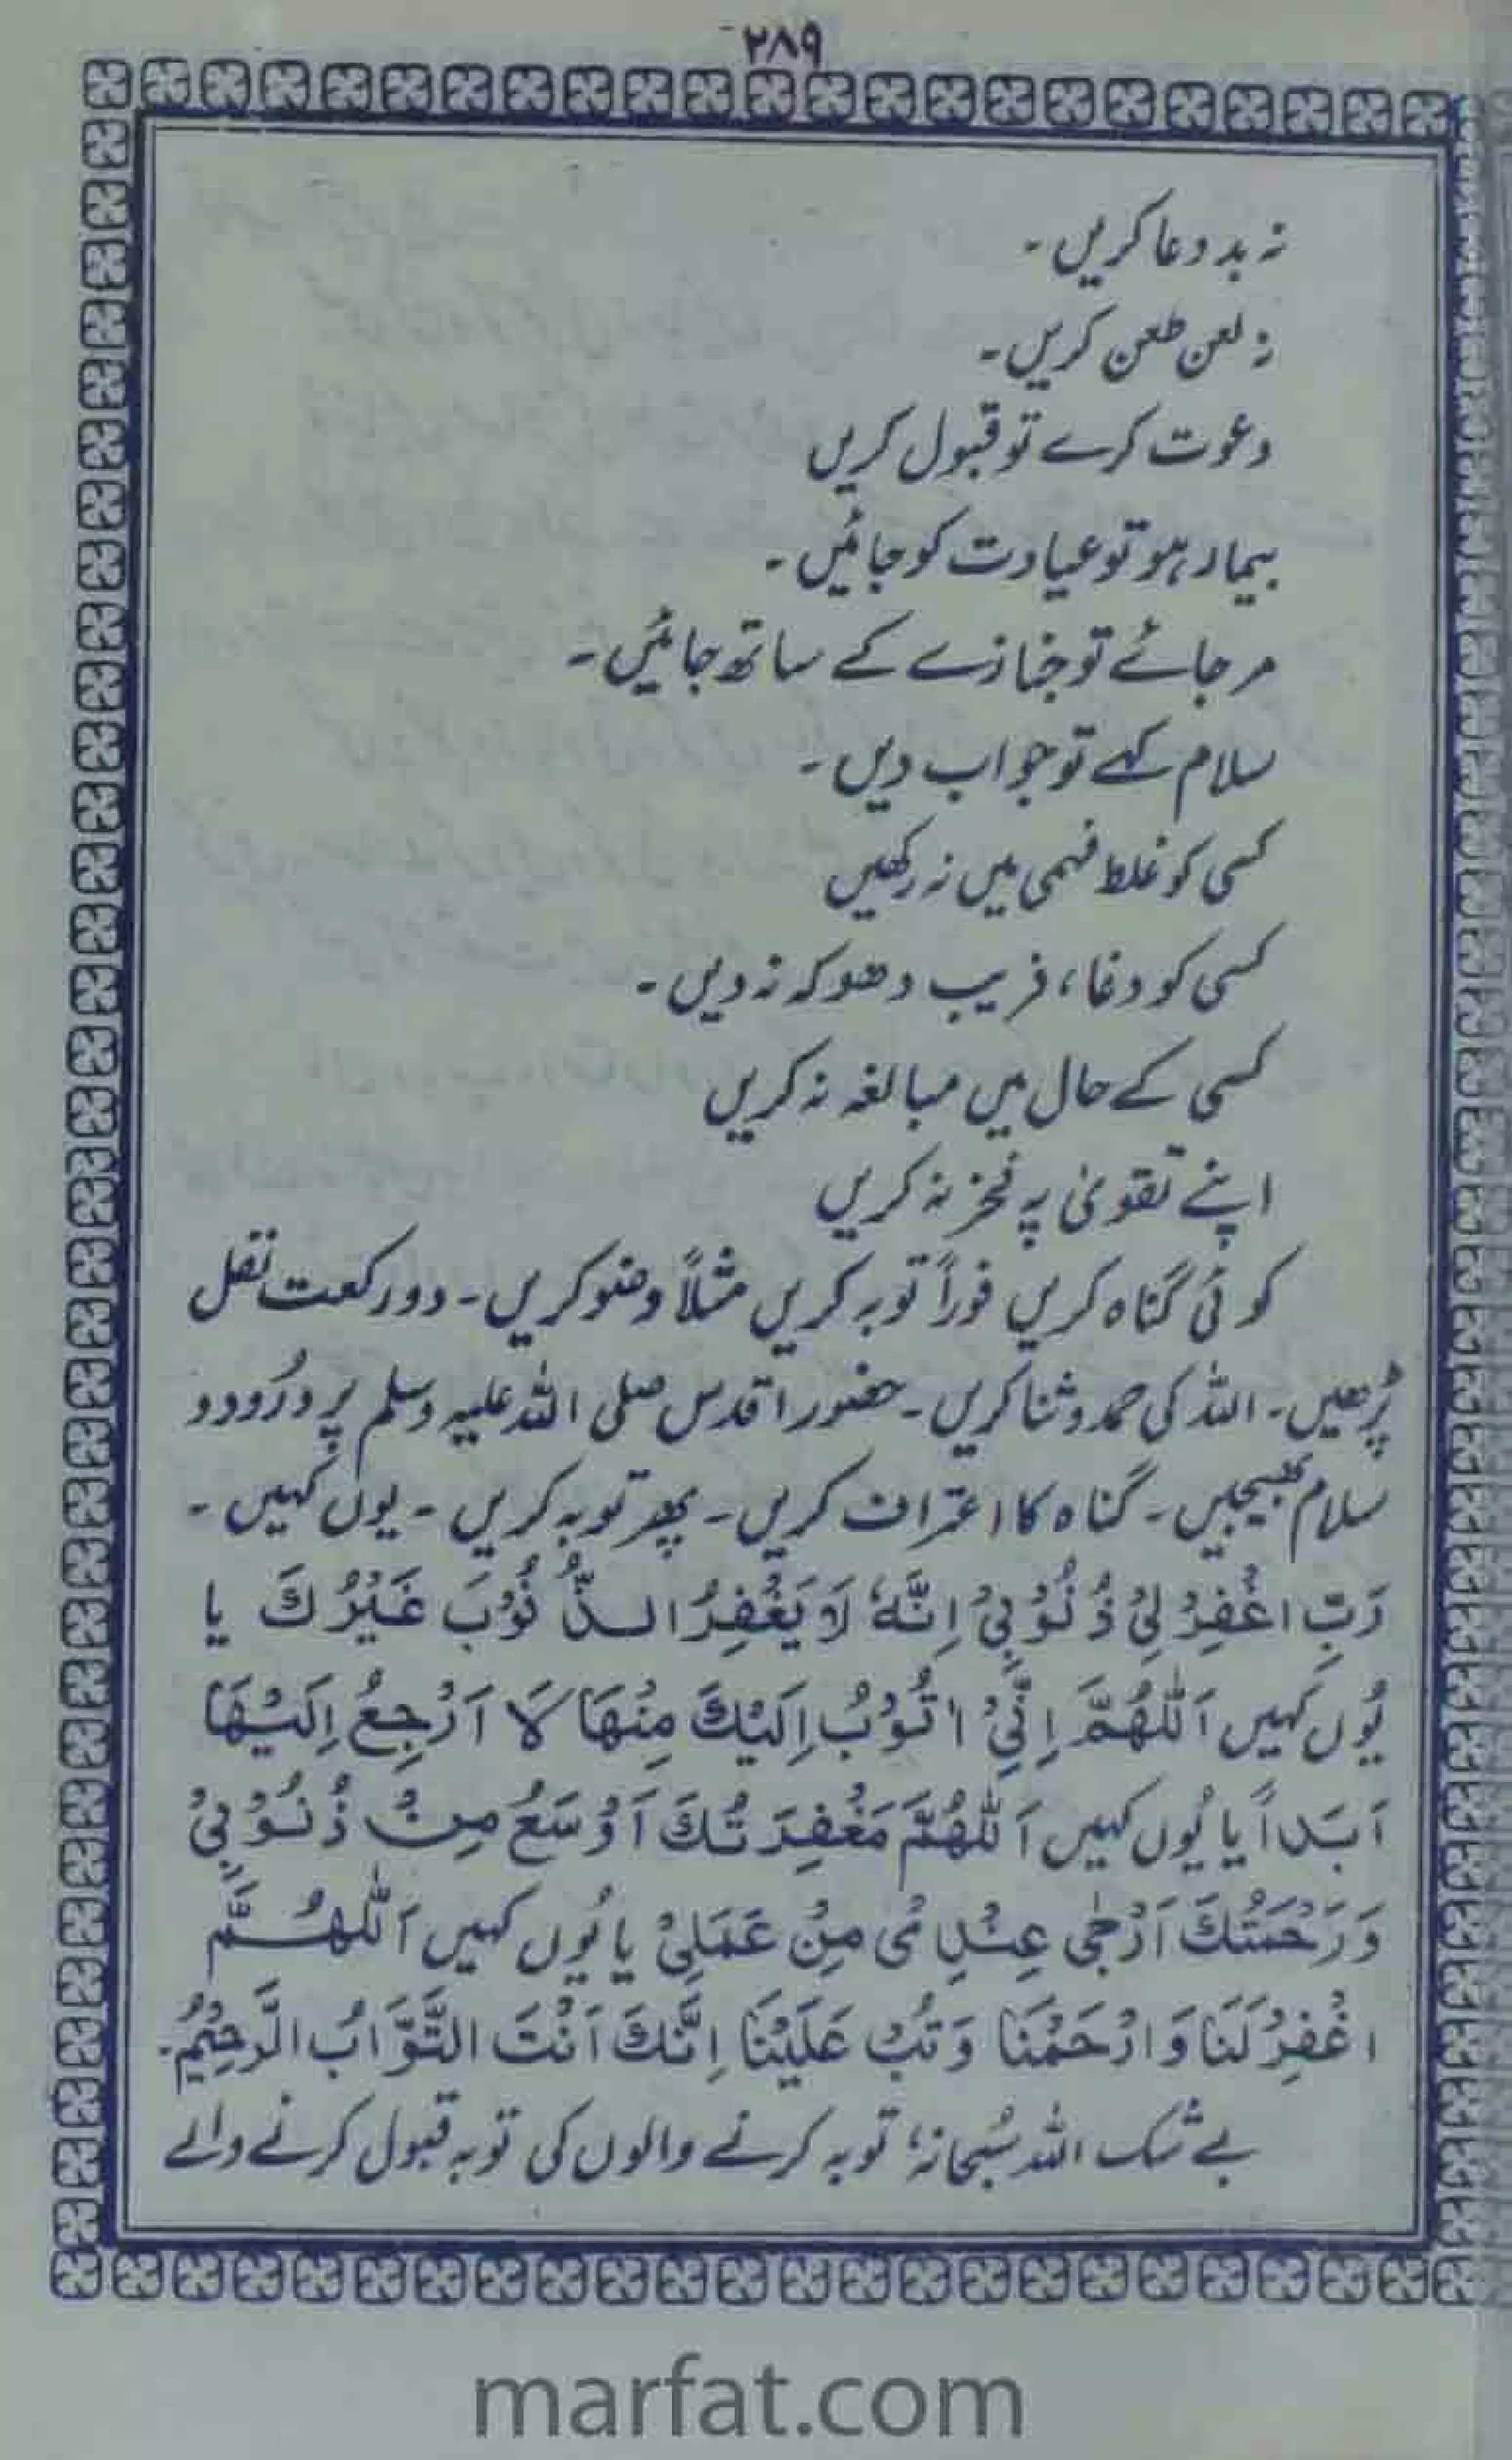 ۲۸۹
نہ بد دعا کریں ۔
نہ لعن طعن کریں ۔
دعوت کرے تو قبول کریں
بیمار ہو تو عیادت کو جائیں ۔
مر جائے تو جنازے کے ساتھ جائیں ۔
سلام کہے تو جواب دیں ۔
کسی کو غلط فہمی میں نہ رکھیں
کسی کو دغا، فریب دھوکہ نہ دیں ۔
کسی کے حال میں مبالغہ نہ کریں
اپنے تقویٰ پہ فخر نہ کریں
کوئی گناہ کریں فوراً توبہ کریں مثلاً وضو کریں ۔ دو رکعت نفل
پڑھیں ۔ اللہ کی حمد و ثنا کریں ۔ حضور اقدس صلی اللہ علیہ وسلم پر درُود و
سلام بھیجیں ۔ گناہ کا اعتراف کریں ۔ پھر توبہ کریں ۔ یوں کہیں ۔
رَبِّ اغْفِرْ لِیْ ذُنُوْبِیْ اِنَّهٗ لَا یَغْفِرُ الذُّنُوْبَ غَیْرُكَ یا
یُوں کہیں اَللّٰهُمَّ اِنِّیْ اَتُوْبُ اِلَیْكَ مِنْهَا لَا اَرْجِعُ اِلَیْهَا
اَبَداً یا یُوں کہیں اَللّٰهُمَّ مَغْفِرَتُكَ اَوْسَعُ مِنْ ذُنُوْبِیْ
وَرَحْمَتُكَ اَرْجٰی عِنْدِیْ مِنْ عَمَلِیْ یا یُوں کہیں اَللّٰهُمَّ
اغْفِرْ لَنَا وَارْحَمْنَا وَتُبْ عَلَیْنَا اِنَّكَ اَنْتَ التَّوَّابُ الرَّحِیْمُ۔
بے شک اللہ سُبحانہٗ توبہ کرنے والوں کی توبہ قبول کرنے والے
marfat.com